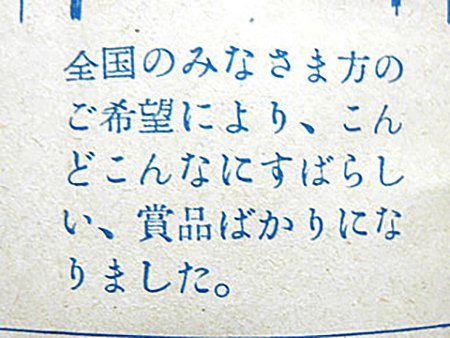 全国のみなさま方の
ご希望により、こん
どこんなにすばらし
い、賞品ばかりにな
りました。